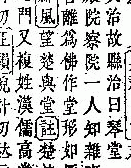 治故縣治曰琴堂
院察院一人知雜
離爲佛作堂形如
風望楚與堂註楚
方又複姓漢儒高